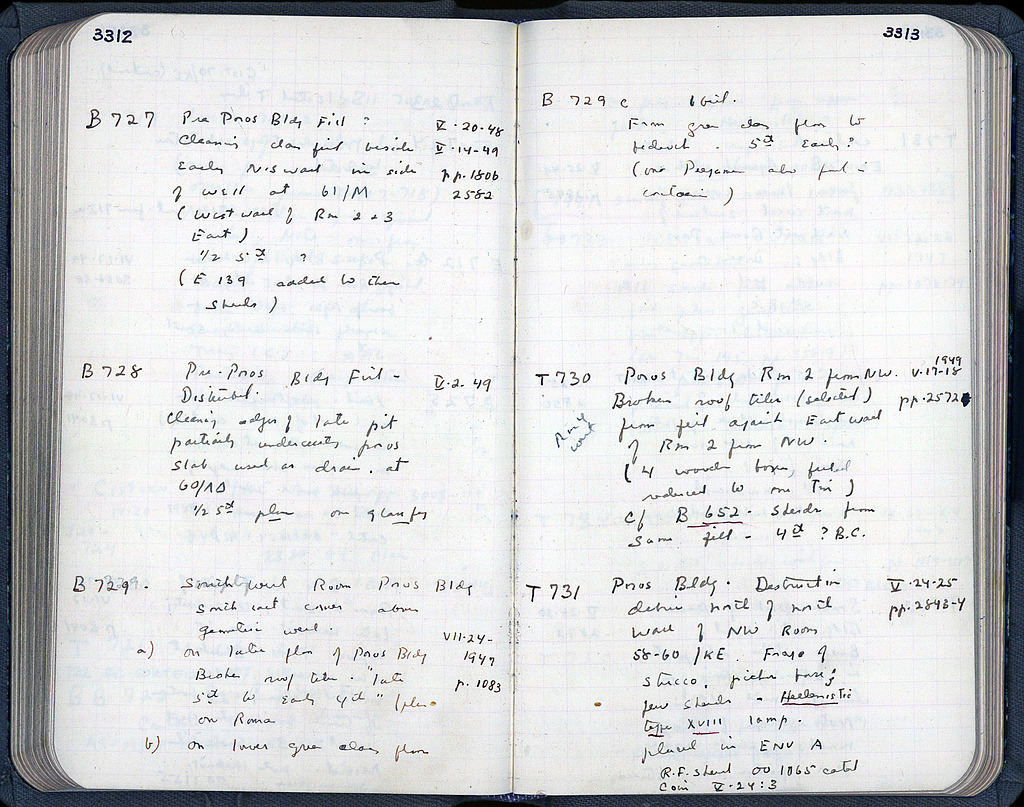 3312
B 727 Pre Poros Bldg Fill ? V-20-48
Cleaning clay fill beside V-14-49
Early N-S wall in side pp. 1806
of well at 61/M 2582
(West wall of Rm 2+3
East)
1/2 5th ?
(E 139 added to these
sherds)
B 728 Pre-Poros Bldg Fill - V-2-49
Disturbed.
Cleaning edges of late pit
partially undercutting poros
slab used as drain. at
60/ΛΔ
1/2 5th plus
B 729. Southwest Room Poros Bldg
South east corner above
geometric well.
VII-24-
a) on late floor of Poros Bldg 1947
Broken roof tiles. "late p. 1083
5th to Early 4th" (plus
on Roman
b) on lower green clay floor
3313
B 729 c
From green clay floor to
bedrock. 5th Early?
(one Pergamene also
)
1949
T 730 Poros Bldg Rm 2 from NW. V-17-18
Broken roof tiles (selected) pp. 2572
from fill against East wall
of Rm 2 from NW.
(4 wooden boxes, fulled
reduced to one Tin)
cf B 652. Sherds from
same fill - 4th ? B.C.
T 731 Poros Bldg. Destruction V-24-25
debris north of north pp. 2843-4
wall of NW Room
58-60/KE. Frags of
stucco,
few sherds - Hellenistic
type XVIII lamp.
placed in ENV A
R.F. sherd 00 1065 catal
Coin V-24:3